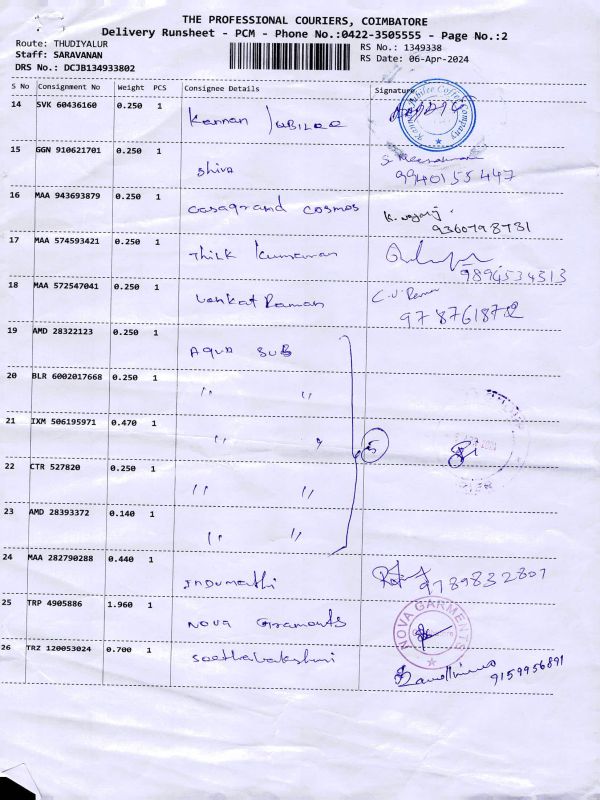 THE PROFESSIONAL COURIERS, COIMBATORE
Delivery Runsheet - PCM - Phone No.:0422-3505555 - Page No.:2
Route: THUDIYALUR RS No.: 1349338
Staff: SARAVANAN RS Date: 06-Apr-2024
DRS No.: DCJB134933802
S No Consignment No Weight PCS Consignee Details Signature
14 SVK 60436160 0.250 1 Kannan Jubilee
15 GGN 910621701 0.250 1 Shiva
9940155447
16 MAA 943693879 0.250 1 casagrand cosmos
9360798731
17 MAA 574593421 0.250 1 Thilk kumaran
9894534313
18 MAA 572547041 0.250 1 Venkat Raman C.V. Raman
19 AMD 28322123 0.250 1 AQUA SUB
20 BLR 6002017668 0.250 1 " "
21 IXM 506195971 0.470 1 " " 5
22 CTR 527820 0.250 1 " "
23 AMD 28393372 0.140 1 " "
24 MAA 282790288 0.440 1 Indumathi 9789832807
25 TRP 4905886 1.960 1 NOVA Garamonts NOVA GARMENTS
26 TRZ 120053024 0.700 1 Seethalakshmi
9159956891